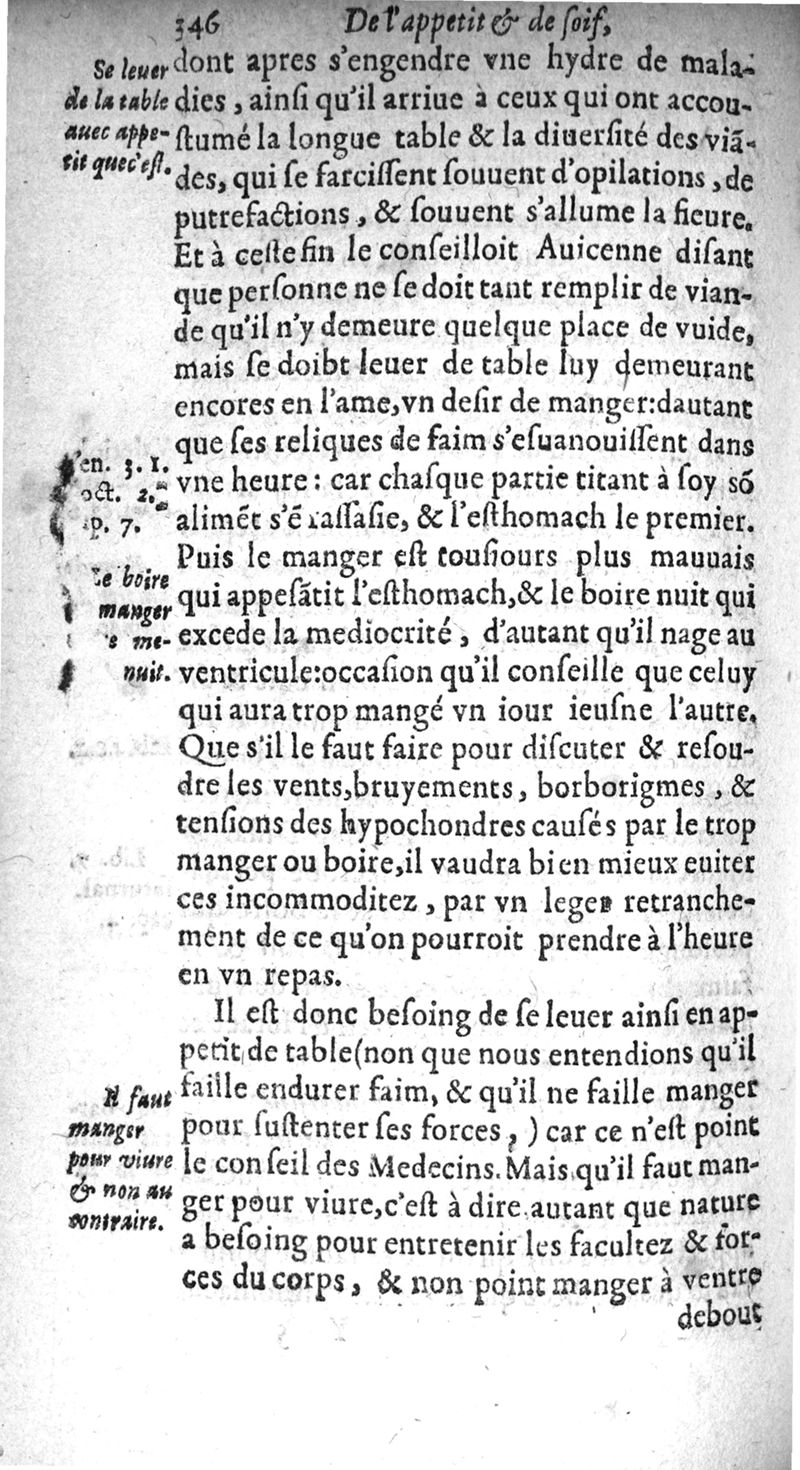 346 De l'appetit & de ſoif,
Se leuer
de la table
auec appe-
tit que c'eſt.
dont apres s'engendre vne hydre de mala-
dies, ainſi qu'il arriue à ceux qui ont accou-
ſtumé la longue table & la diuerſité des viā-
des, qui ſe farciſſent ſouuent d'opilations, de
putrefactions, & ſouuent s'allume la fieure.
Et à ceſte fin le conſeilloit Auicenne diſant
que perſonne ne ſe doit tant remplir de vian-
de qu'il n'y demeure quelque place de vuide,
mais ſe doibt leuer de table luy demeurant
encores en l'ame, vn deſir de manger: dautant
que ſes reliques de faim s'eſuanouiſſent dans
en. 3. 1.
oct. 2.
p. 7.
vne heure: car chaſque partie titant à ſoy sō
alimēt s'ē raſſaſie, & l'eſthomach le premier.
Puis le manger eſt touſiours plus mauuais
e boire
manger
s me-
nuit.
qui appeſātit l'eſthomach, & le boire nuit qui
excede la mediocrité, d'autant qu'il nage au
ventricule: occaſion qu'il conſeille que celuy
qui aura trop mangé vn iour ieuſne l'autre.
Que s'il le faut faire pour diſcuter & reſou-
dre les vents, bruyements, borborigmes, &
tenſions des hypochondres cauſés par le trop
manger ou boire, il vaudra bien mieux euiter
ces incommoditez, par vn leger retranche-
ment de ce qu'on pourroit prendre à l'heure
en vn repas.
Il eſt donc beſoing de ſe leuer ainſi en ap-
petit de table (non que nous entendions qu'il
faille endurer faim, & qu'il ne faille manger
Il faut
manger
pour viure
& non au
contraire.
pour ſuſtenter ſes forces, ) car ce n'eſt point
le conſeil des Medecins. Mais qu'il faut man-
ger pour viure, c'eſt à dire autant que nature
a beſoing pour entretenir les facultez & for-
ces du corps, & non point manger à ventre
debout